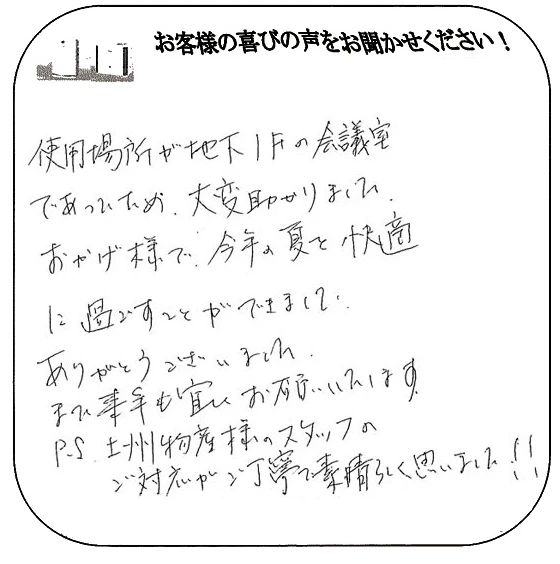 お客様の喜びの声をお聞かせください！
使用場所が地下1Fの会議室
であったため、大変助かりました。
おかげ様で、今年の夏を快適
に過ごすことができました。
ありがとうございました。
また来年も宜しくお願いいたします。
P.S. 土州物産様のスタッフの
ご対応がご丁寧で素晴らしく思いました!!